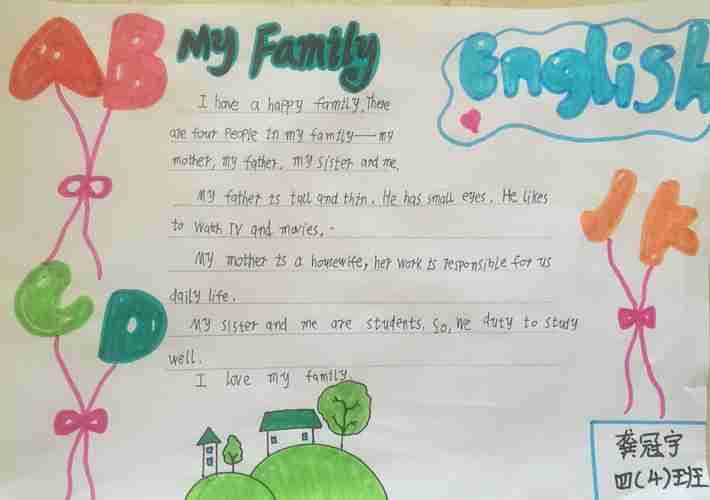 AB
My Family
English
I have a happy family. There
are four People in my family—my
mother, my father, my sister and me.
My father is tall and thin. He has small eyes. He likes
to watch TV and movies.
My mother is a housewife, her work is responsible for us
daily life.
My sister and me are students. So, we duty to study
well.
I love my family.
JK
CD
龚冠宇
四(4)班